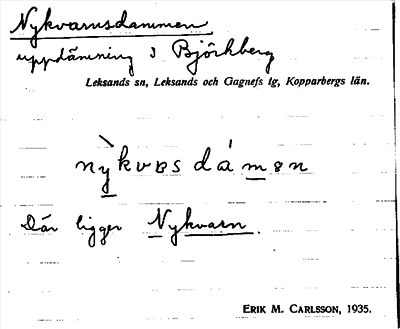 Nykvarnsdammen
uppdämning i Björkberg
Leksands sn, Leksands och Gagnefs tg, Kopparbergs län.
Där ligger Nykvarn.
ERIK M. CARLSSON, 1935.